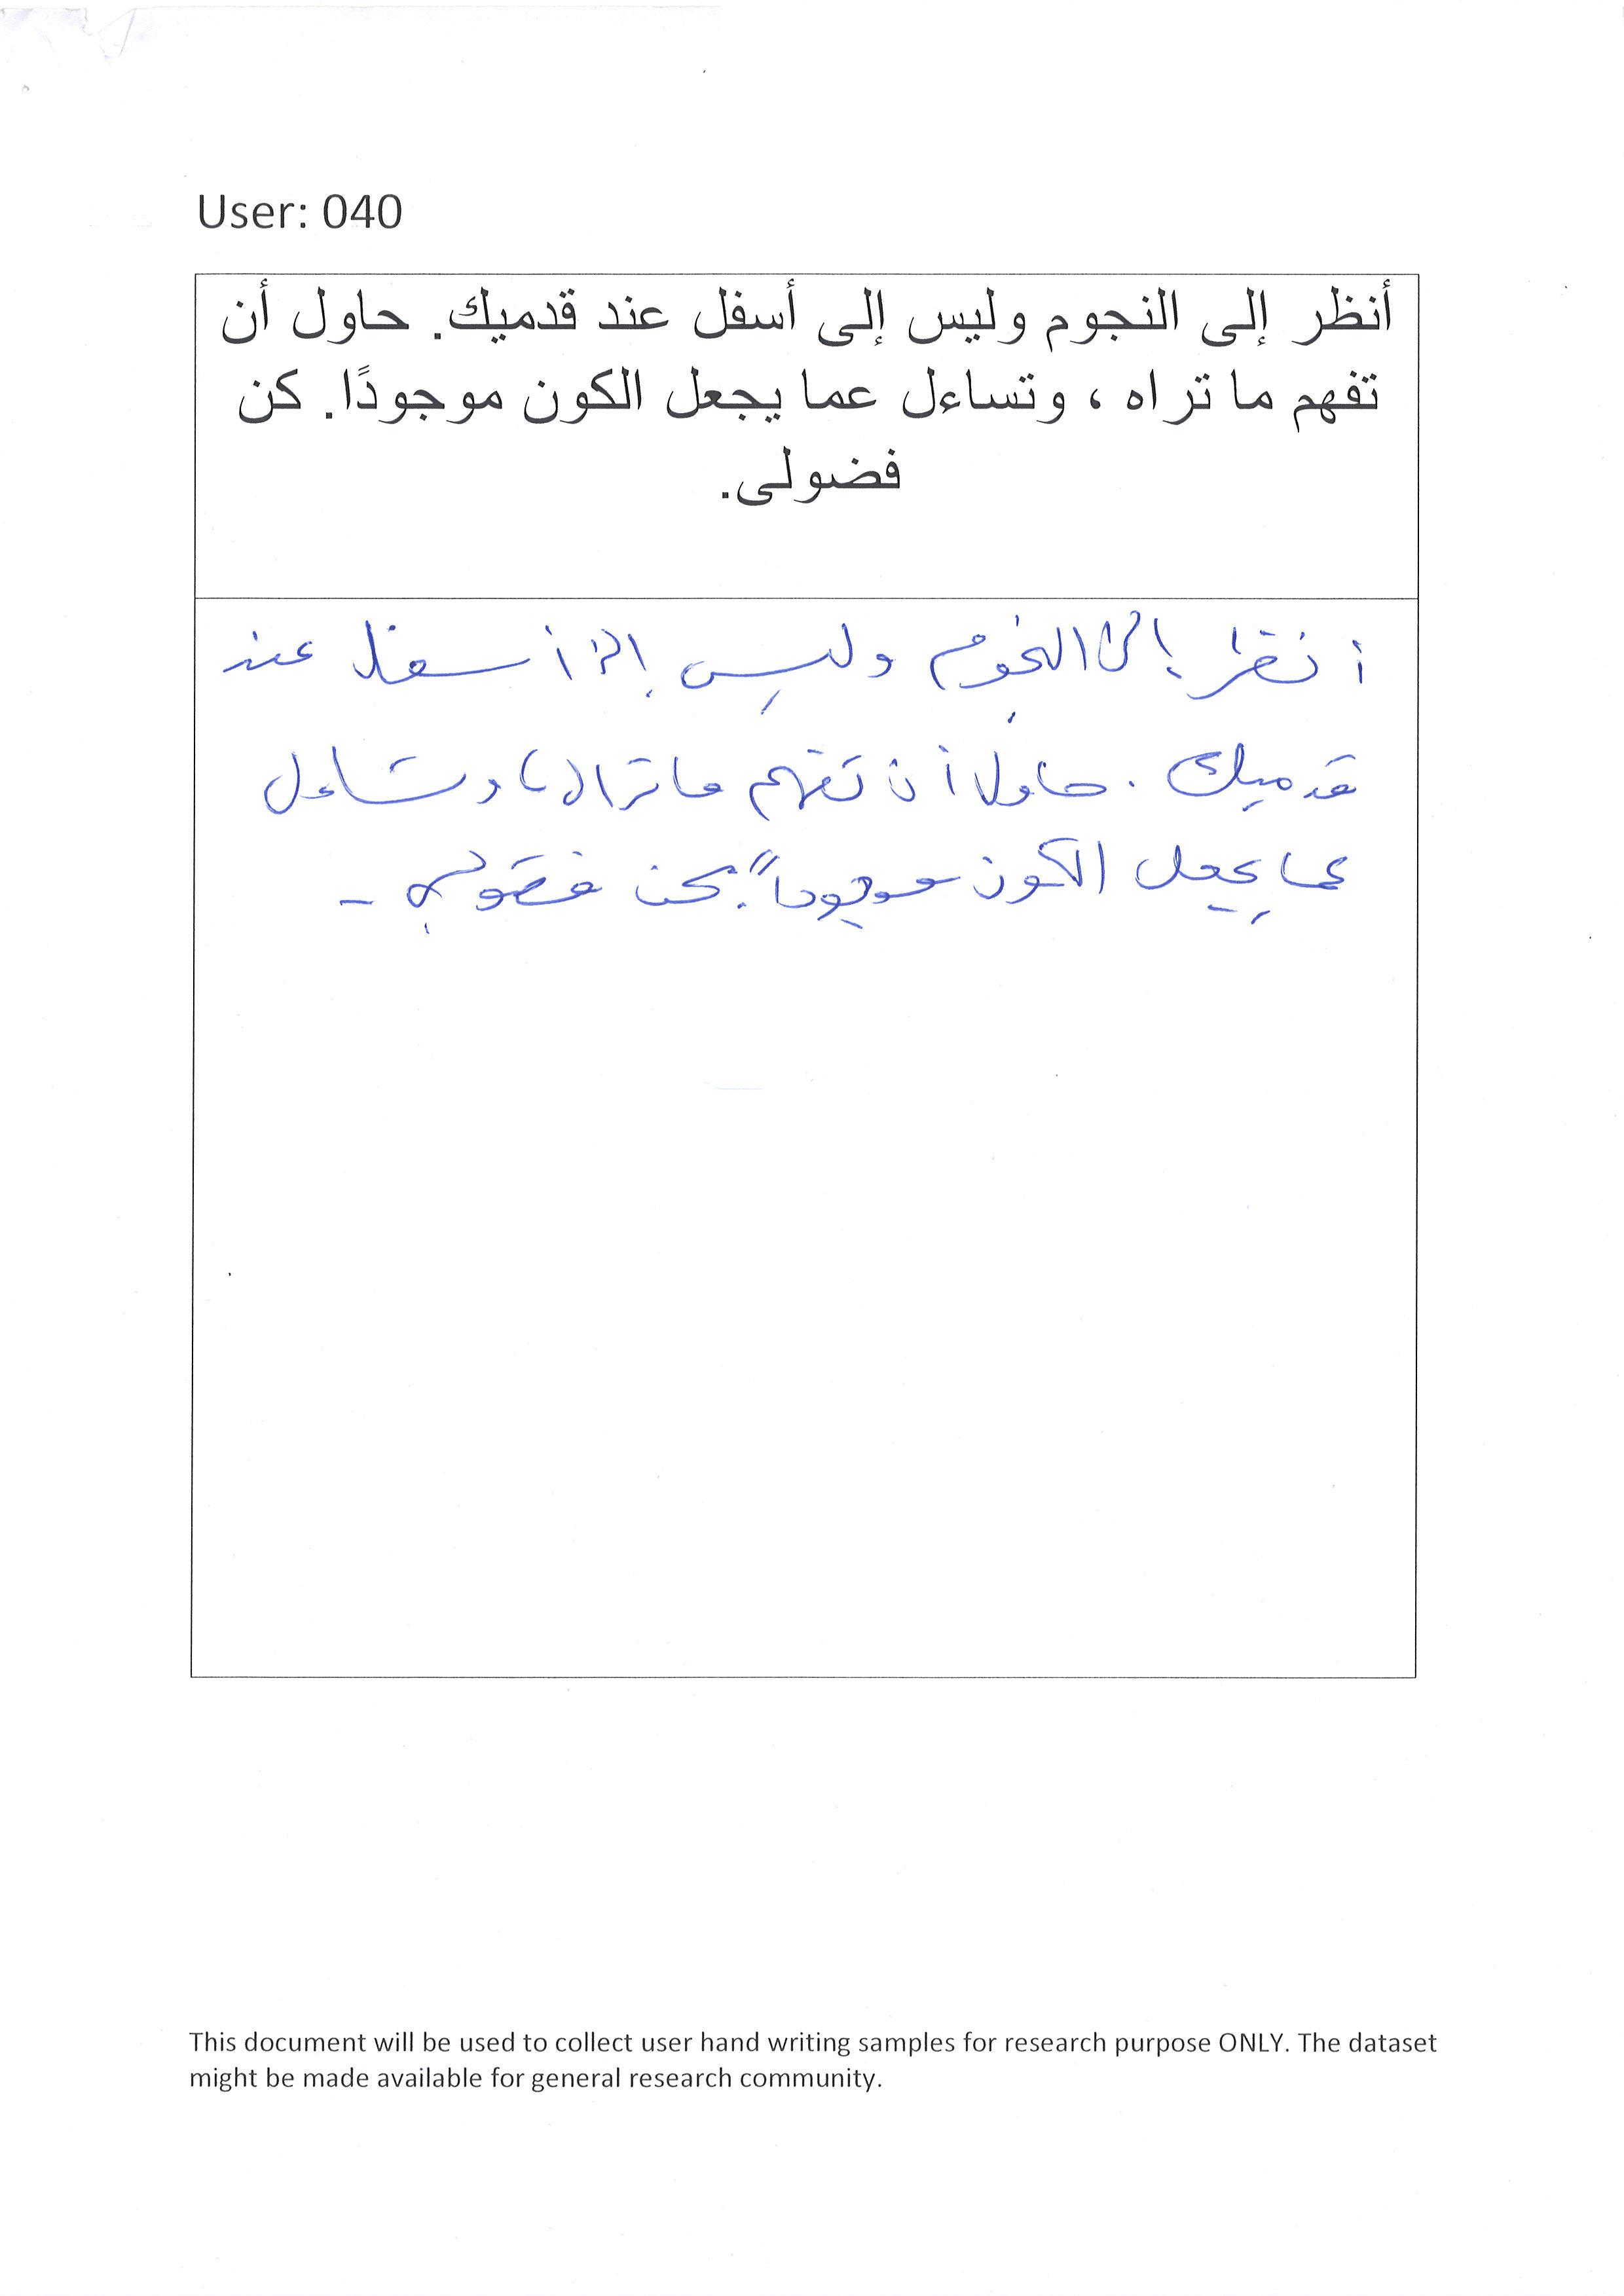 User: 040
أنظر إلى النجوم وليس إلى أسفل عند قدميك. حاول أن
تفهم ما تراه ، وتساءل عما يجعل الكون موجودًا. كن
فضولى.
أنظر إلى النجوم وليس إلى أسفل عند
قدميك . حاول أن تفهم ما تراه ، وتساءل
عما يجعل الكون موجوداً . كن فضولي .
This document will be used to collect user hand writing samples for research purpose ONLY. The dataset
might be made available for general research community.